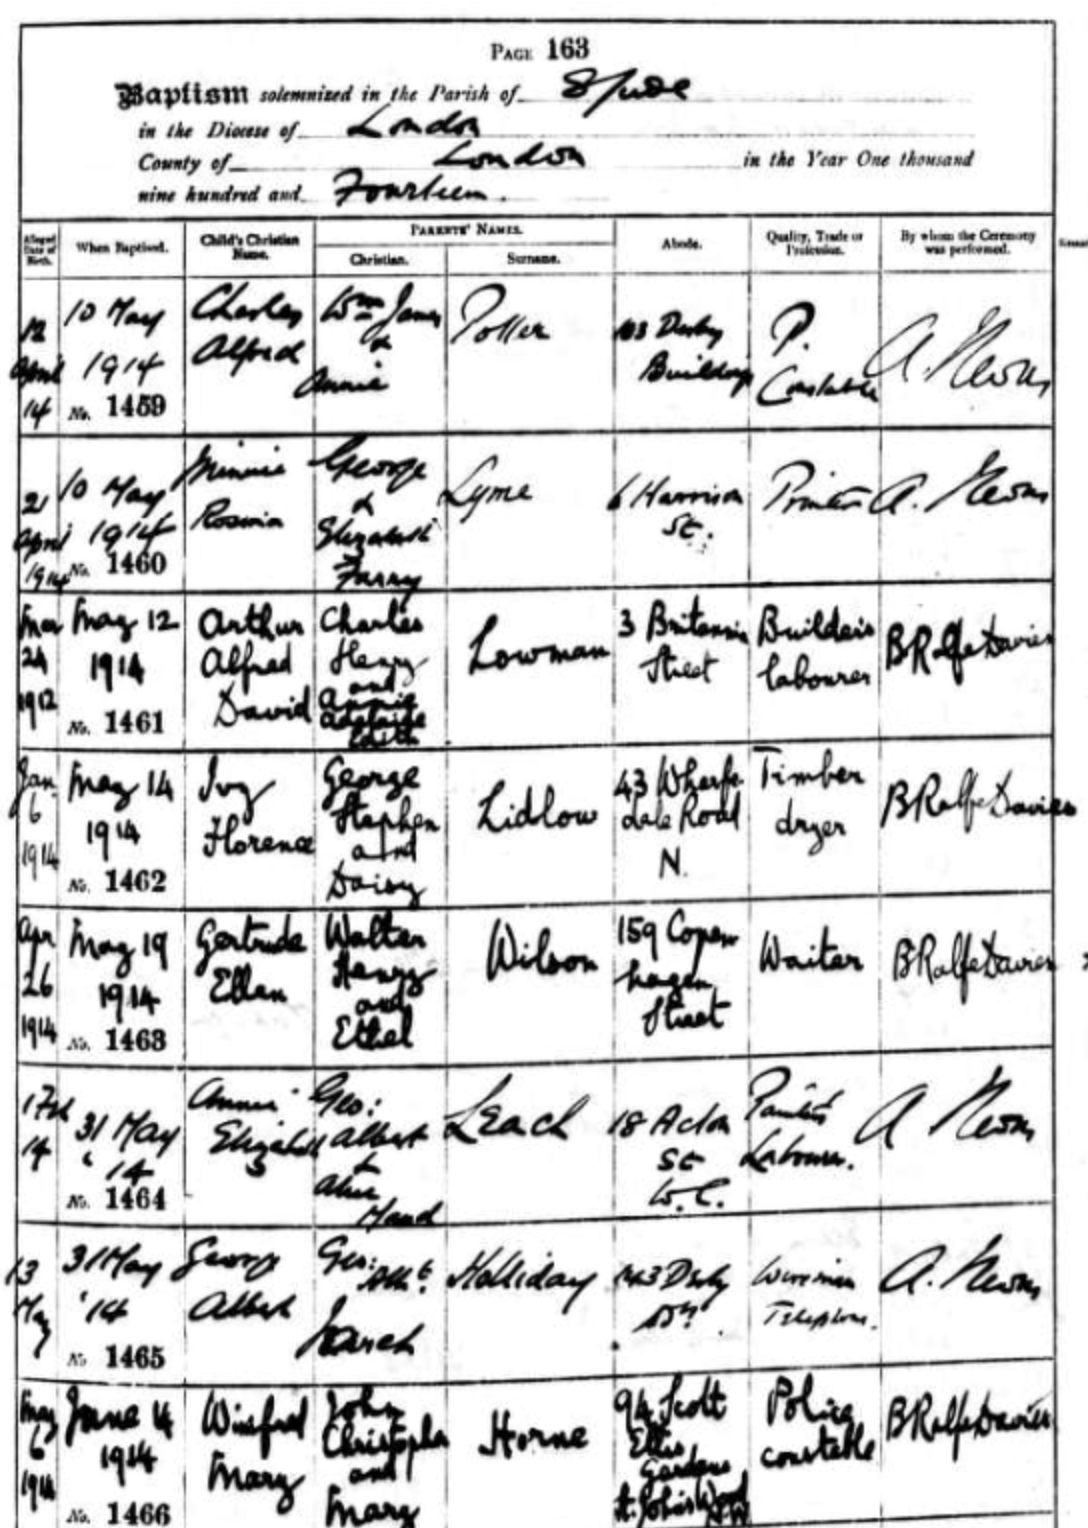 PAGE 163
Baptism solemnized in the Parish of S/Jude
in the Diocese of London
County of London in the Year One thousand
nine hundred and Fourteen.
Alleged Date of Birth. When Baptised. Child's Christian Name. PARENTS' NAMES. Christian. Surname. Abode. Quality, Trade or Profession. By whom the Ceremony was performed.
12 April 14
10 May 1914
No. 1459
Charles Alfred
Wm James & Annie
Potter
Derby Buildings
P. Constable
A.
21 April 1914
10 May 1914
No. 1460
Minnie
George & Elizabeth
Lyme
6 Harrison St.
Printer
A.
Mar 24 1912
May 12 1914
No. 1461
Arthur Alfred David
Charles Henry and Annie Adelaide Edith
Lowman
3 Britannia Street
Builders labourer
B Rolfe Davies
Jan. 6 1914
May 14 1914
No. 1462
Ivy Florence
George Stephen and Daisy
Lidlow
43 Wharfedale Road N.
Timber dryer
B Rolfe Davies
Apr 26 1914
May 19 1914
No. 1463
Gertrude Ellen
Walter Henry and Ethel
Wilson
159 Copenhagen Street
Waiter
B Rolfe Davies
14
31 May '14
No. 1464
Annie Elizabeth
Geo: Albert & Alice Maud
Leach
18 Acton St W.C.
Labourer.
A
13 May
31 May '14
No. 1465
George Albert
Geo: Albt.
Holliday
Derby
Wireman Telephone.
A.
May 6 1914
June 4 1914
No. 1466
Winifred Mary
John Christopher and Mary
Horne
94 Scott Ellis Gardens St. Johns Wood N.W
Police constable
B Rolfe Davies